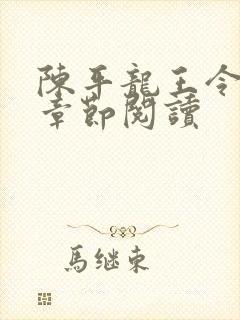 陳平龍王令
章節閱讀
馬继東